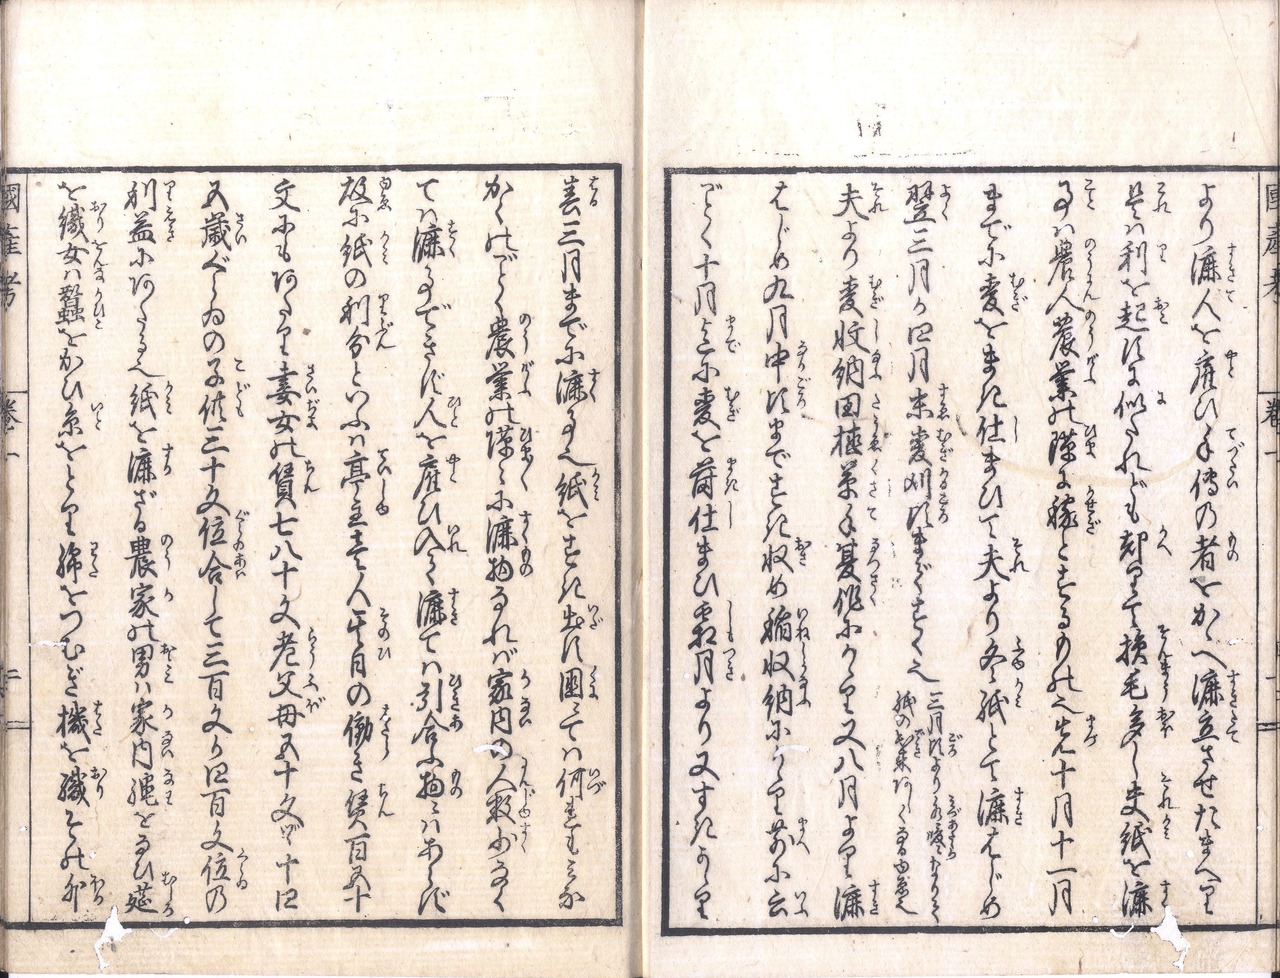 より漉人を雇ひ手傳の者をかゝへ漉立させたまへり
是は利を起すに似たれども却つて損毛多し夫紙を漉
事ハ農人農業の隙に稼とするもの也先十月十一月
までに麦をまき仕まひて夫より冬紙とて漉はじめ
翌三月か四月末麦刈頃まですく也
三月頃よりは水暖かなりて
紙の出来あしくなる由縁也
夫より麦收納田植草手夏作にかゝり又八月より漉
はじめ九月中頃まですき収め稲収納にかゝり前に云
ごとく十月迄に麦を蒔仕まひ霜月より又すきかゝり
春三月まで漉事也紙をすき出す國にては何れもみな
かくのごとく農業の隙々に漉物なれバ家内の人数少なく
てハ漉事できず人を雇ひ入て漉てハ引合ふ物にはあらず
故に紙の利分といふハ亭主壱人其日の働き賃百五十
文にもあたり妻女の賃七八十文老父母五十文づゝ十四
五歳ぐらゐの子供三十文位合して三百文か四百文位の
利益にあたる也紙を漉ざる農家の男ハ家内縄をなひ莚
を織女ハ蠶をかひ糸をとり綿をつむぎ機を織その外
國産考
巻一
二